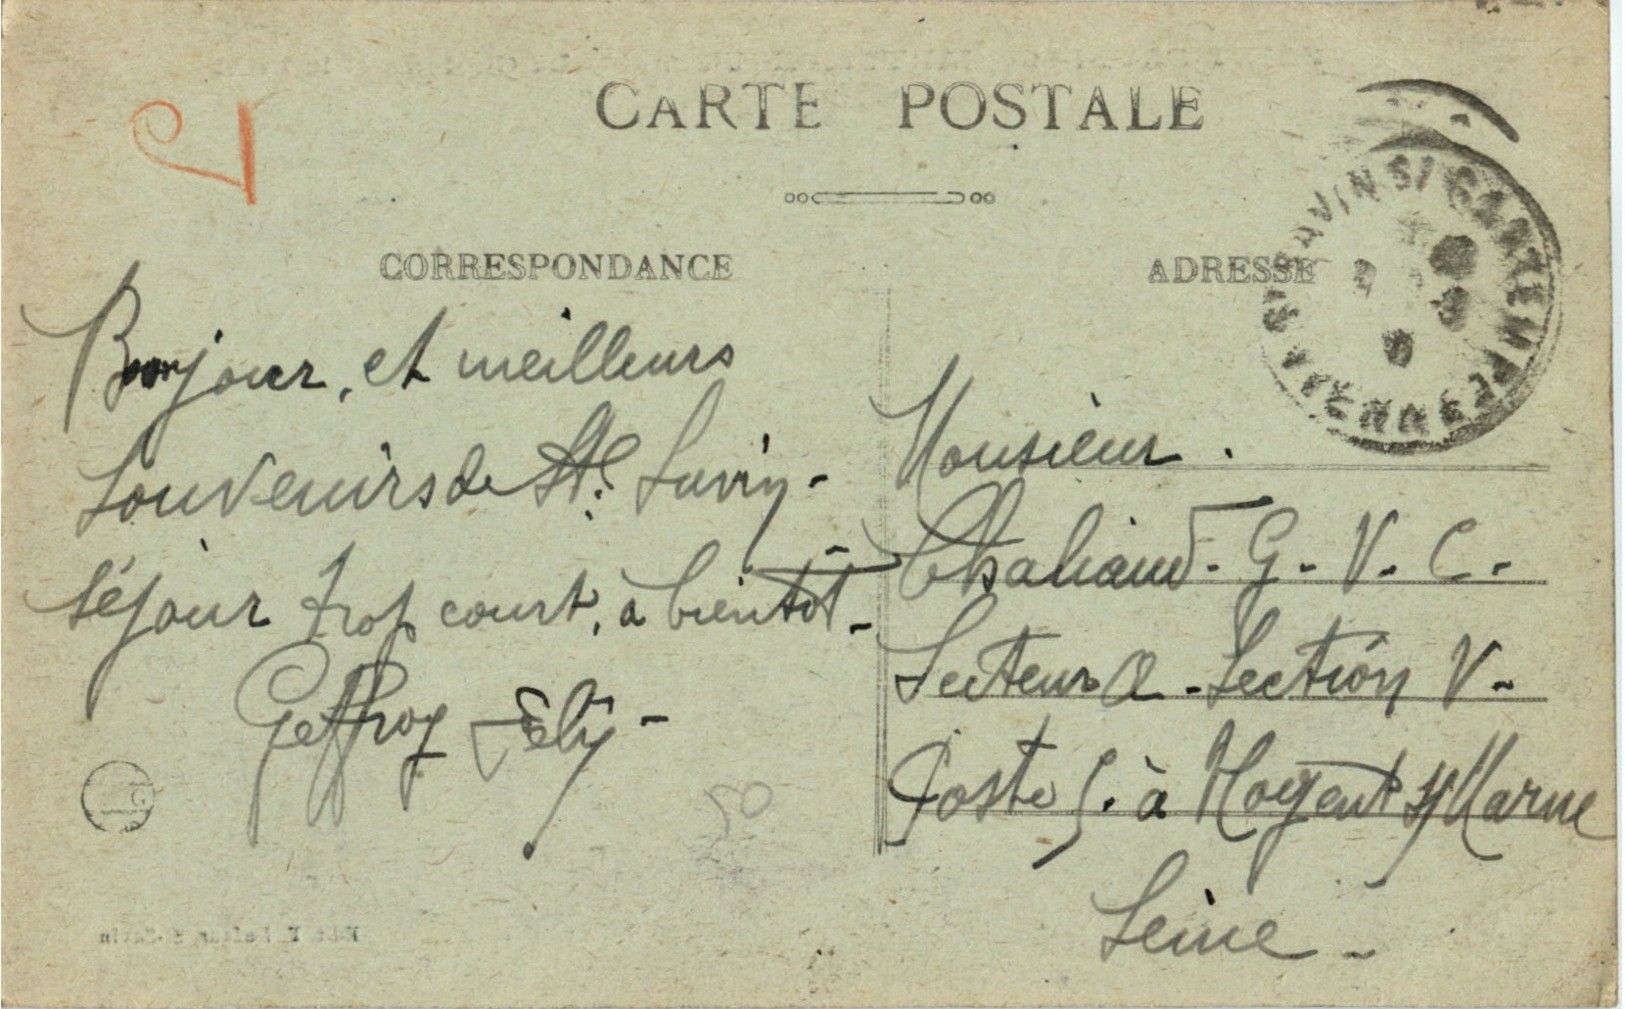 CARTE POSTALE
CORRESPONDANCE
Bonjour, et meilleurs
souvenirs de St. Savin -
séjour trop court, à bientôt -
Geffroy Fély -
50
ADRESSE
Monsieur.
Chaliaud - G. V. C.
Secteur Q - Section V -
Poste 5. à Nogent s/ Marne
Seine -
ST SAVIN S/ GARTEMPE VIENNE